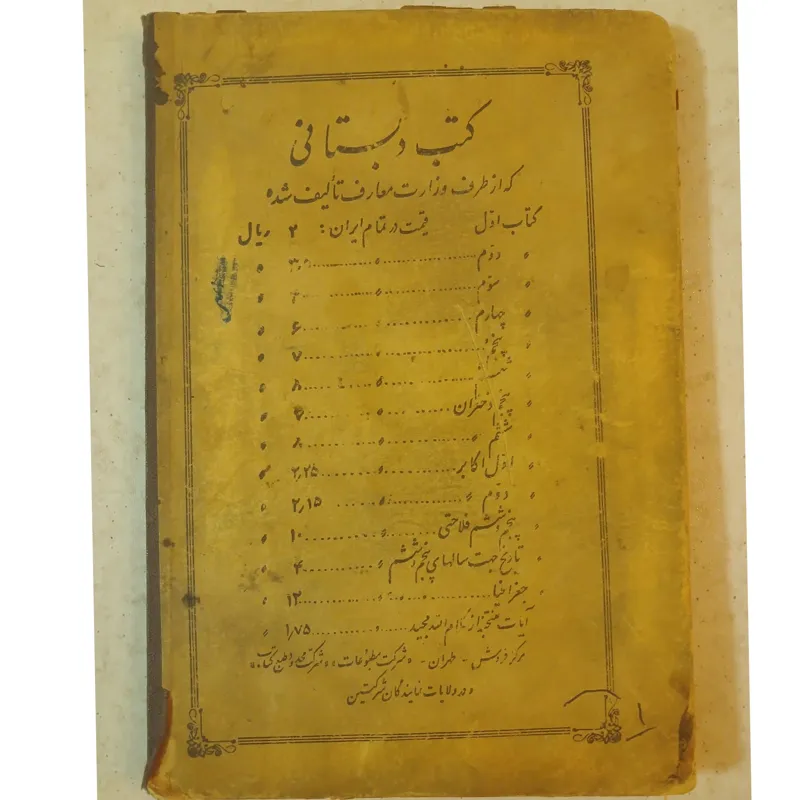 کتب دبستانی
که از طرف وزارت معارف تألیف شده
کتاب اول قیمت در تمام ایران: ۲ ریال
» دوم .......... » .......... ۳٫۵ »
» سوم .......... » .......... ۴ »
» چهارم .......... » .......... ۶ »
پنجم .......... » .......... ۷ »
» ششم .......... » .......... ۸ »
» پنجم دختران .......... » .......... ۷ »
» ششم » .......... » .......... ۸ »
» اول اکابر .......... » .......... ۲٫۲۵ »
» دوم » .......... » .......... ۲٫۱۵ »
» پنجم و ششم فلاحتی .......... » .......... ۱۰ »
» تاریخ جهت سالهای پنجم و ششم » .......... ۴ »
» جغرافیا .......... » .......... ۱۲ »
آیات منتخبه از کلام الله مجید .......... » .......... ۱٫۷۵ »
مرکز فروش - طهران - «شرکت مطبوعات» «شرکت محدود طبع کتاب»
و در ولایات نمایندگان شرکتین
۱